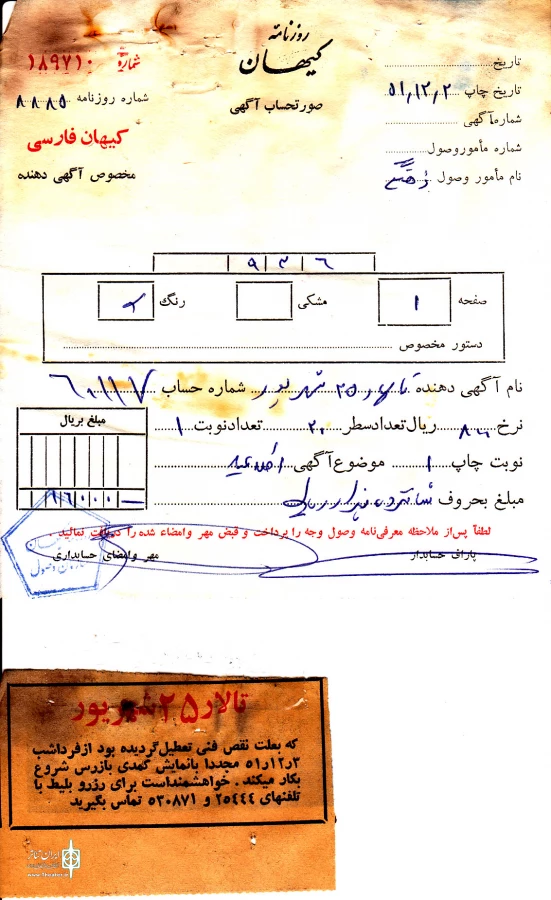 روزنامه
کیهان
صورتحساب آگهی
شماره ۱۸۹۷۱۰
شماره روزنامه ۸۸۸۵
کیهان فارسی
مخصوص آگهی دهنده
تاریخ
تاریخ چاپ ۵۱,۱۲,۲
شماره آگهی
شماره مأمور وصول
نام مأمور وصول
۹ ۳ ۶
صفحه ۱ مشکی رنگ
دستور مخصوص
نام آگهی دهنده تالار ۲۵ شهریور شماره حساب
نرخ ۸۰۰ ریال تعداد سطر ۲۰ تعداد نوبت ۱
نوبت چاپ ۱ موضوع آگهی اعلامیه
مبلغ بحروف شانزده هزار ریال
مبلغ بریال
۱۶۰۰۰
لطفاً پس از ملاحظه معرفی‌نامه وصول وجه را پرداخت و قبض مهر وامضاء شده را دریافت نمائید .
پاراف حسابدار
مهر وامضای حسابداری
تالار ۲۵ شهریور
که بعلت نقص فنی تعطیل گردیده بود از فرداشب
۵۱ر۱۲ر۳ مجددا بانمایش کمدی بازرس شروع
بکار میکند . خواهشمنداست برای رزرو بلیط با
تلفنهای ۲۵۴۴۴ و ۵۳۰۸۷۱ تماس بگیرید
ایران تئاتر
www.theater.ir